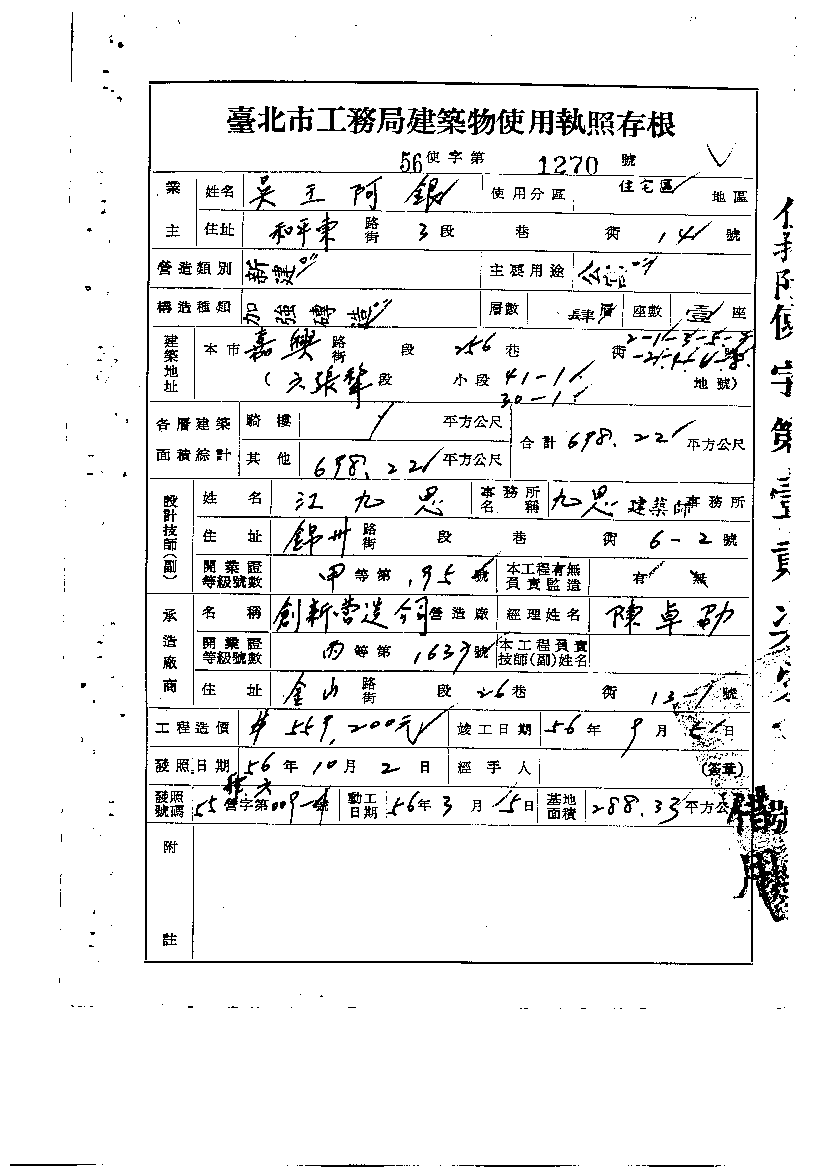 臺北市工務局建築物使用執照存根
56使字第 1270 號
業主 姓名 吳王阿銀 使用分區 住宅區 地區
住址 和平東 路街 3 段 巷 衖 14 號
營造類別 新建 主要用途 公寓
構造種類 加強磚造 層數 肆層 座數 壹座
建築地址 本市 嘉興 路街 段 256 巷 衖 號
(六張犂段 小段 41-1 地號)
30-1
各層建築面積綜計 騎樓 / 平方公尺 合計 698.22 平方公尺
其他 698.22 平方公尺
設計技師(副) 姓名 江九思 事務所名稱 九思建築師事務所
住址 錦州 路街 段 巷 衖 6-2 號
開業證等級號數 甲等第 195 號 本工程有無負責監造 有 無
承造廠商 名稱 創新營造公司營造廠 經理姓名 陳卓勛
開業證等級號數 丙等第 1637 號 本工程負責技師(副)姓名
住址 金山 路街 段 26 巷 衖 13-1 號
工程造價 # 559,200元 竣工日期 56年 9月 日
發照日期 56年10月2日 經手人 (簽章)
發照號碼 55營字第009 號 動工日期 56年3月15日 基地面積 288.33 平方公尺
附註
借用